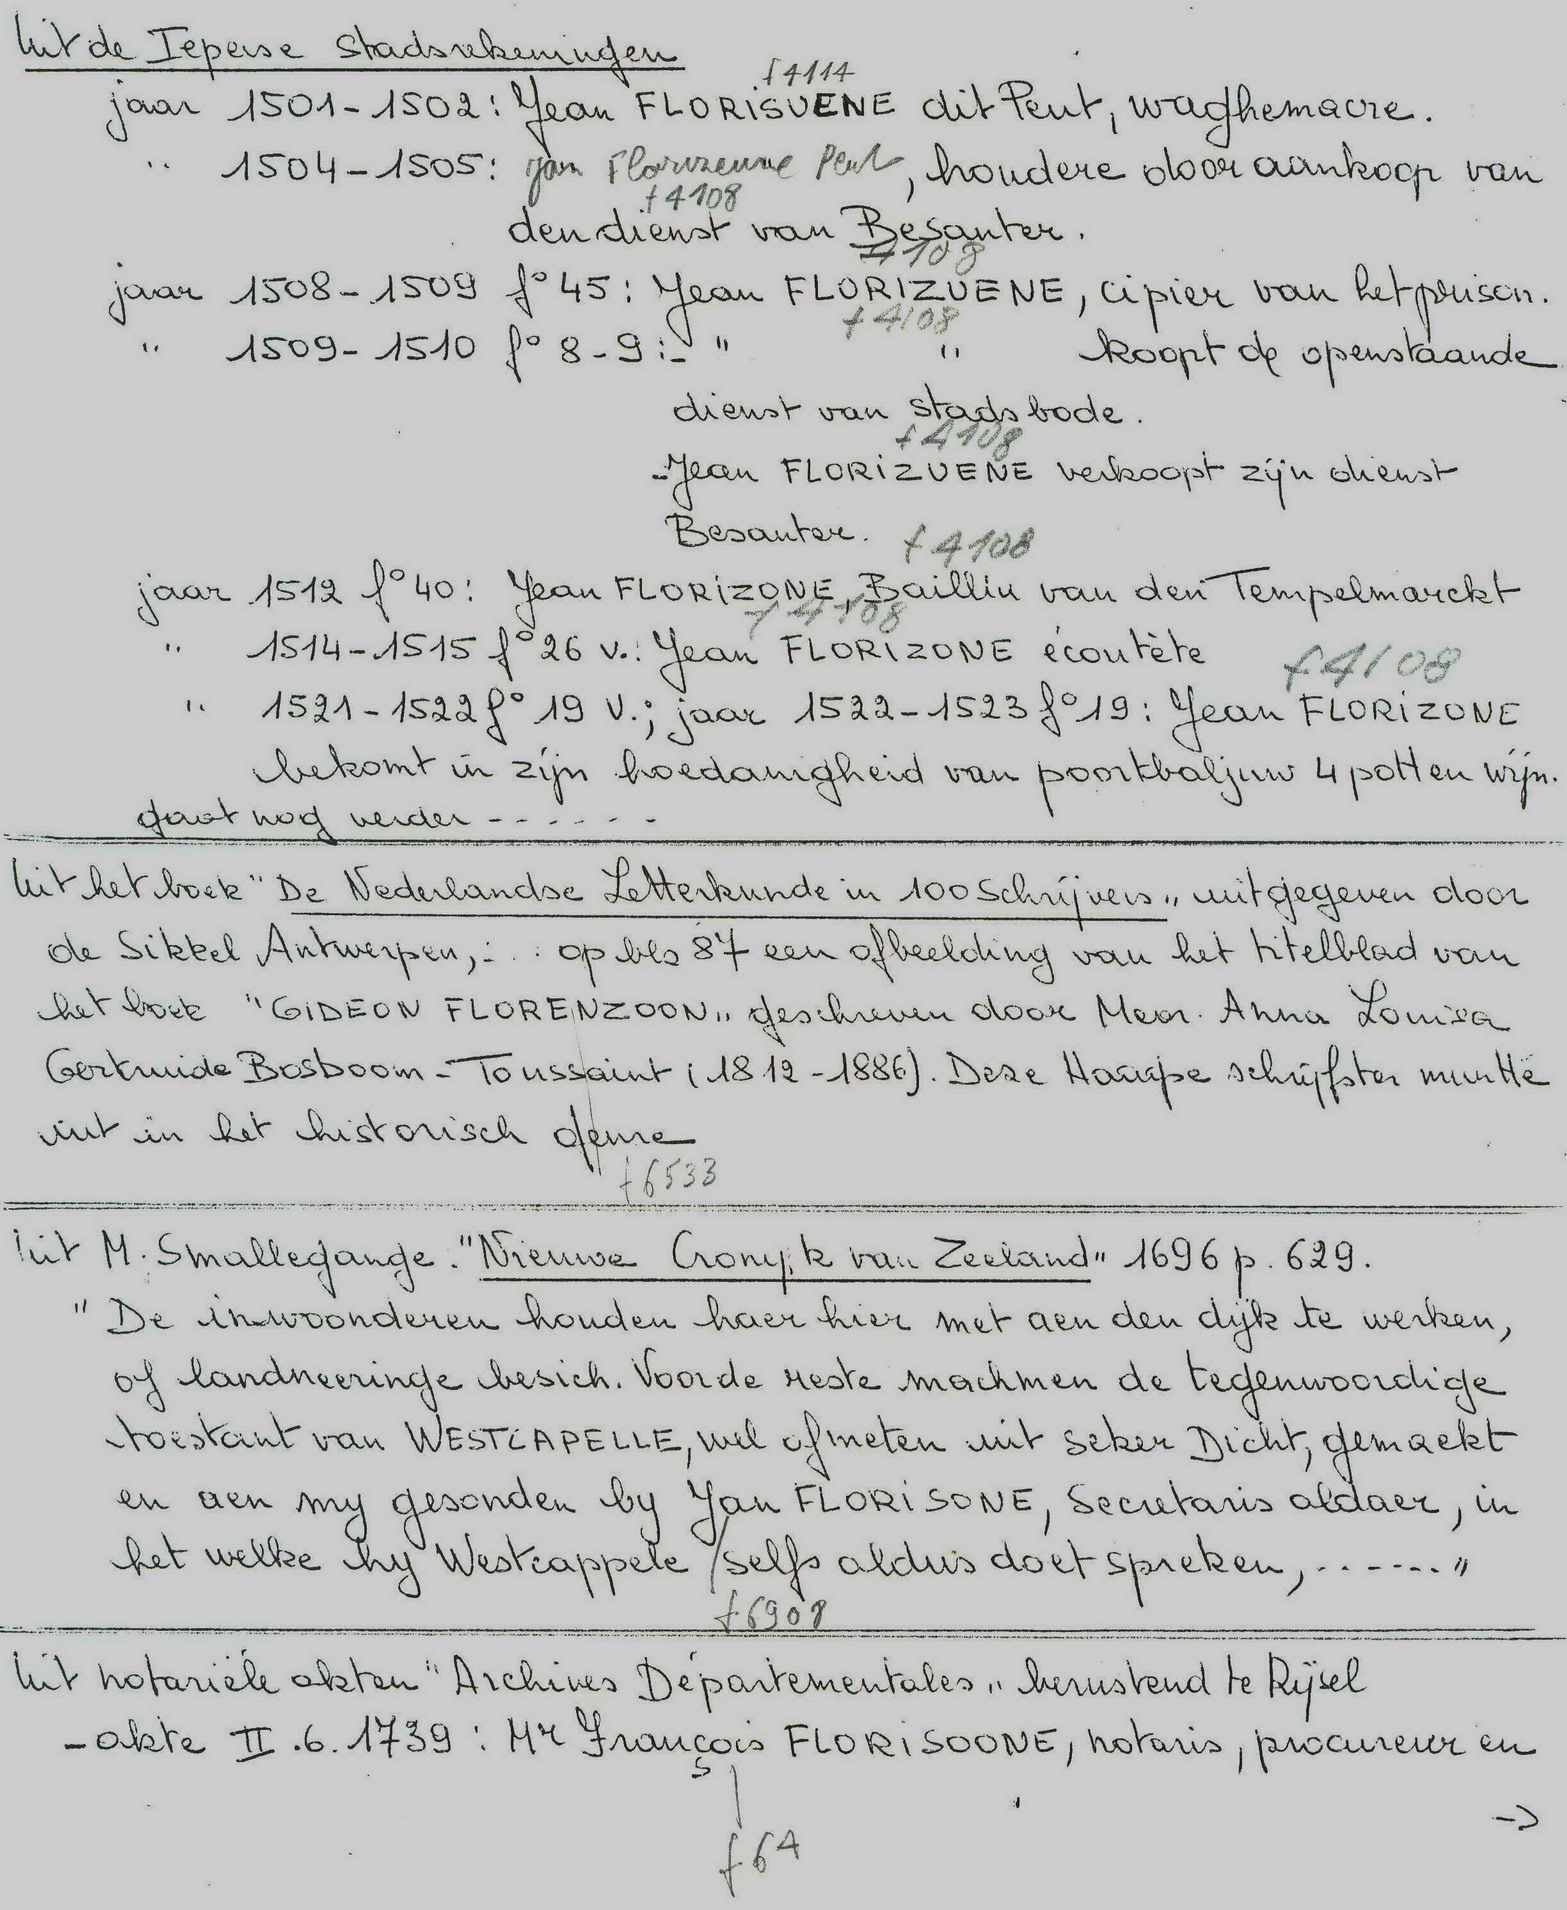 Uit de Ieperse Stadsrekeningen
f4114
jaar 1501-1502: Jean FLORISVENE dit Peut, waghemacre.
" 1504-1505: Jan Florizeune Peut, houdere door aankoop van
f4108
den dienst van Besanter.
f4108
jaar 1508-1509 f° 45: Jean FLORIZVENE, cipier van het prison.
f4108
" 1509-1510 f° 8-9:- " " koopt de openstaande
dienst van stadsbode.
f4108
-Jean FLORIZVENE verkoopt zijn dienst
Besanter. f4108
jaar 1512 f° 40: Jean FLORIZONE, Bailliu van den Tempelmarckt
f4108
" 1514-1515 f° 26 v.: Jean FLORIZONE écoutète f4108
" 1521-1522 f° 19 V.; jaar 1522-1523 f° 19: Jean FLORIZONE
bekomt in zijn hoedanigheid van poortbaljuw 4 potten wijn.
gaat nog verder ------
Uit het boek "De Nederlandse Letterkunde in 100 Schrijvers" uitgegeven door
de Sikkel Antwerpen,: op blz 87 een afbeelding van het titelblad van
het boek "GIDEON FLORENZOON" geschreven door Mevr. Anna Louisa
Gertruide Bosboom-Toussaint (1812-1886). Deze Haagse schrijfster muntte
uit in het historisch genre
f6533
Uit M. Smallegange. "Nieuwe Cronyk van Zeeland" 1696 p. 629.
"De inwoonderen houden haer hier met aen den dijk te werken,
of landneeringe besich. Voor de reste machmen de tegenwoordige
toestant van WESTCAPELLE, wel afmeten uit seker Dicht, gemaekt
en aen my gesonden by Jan FLORISONE, Secretaris aldaer, in
het welke hy Westcappele selfs aldus doet spreken, ......"
f6908
Uit notariële akten "Archives Départementales" berustend te Rijsel
-akte II.6.1739: Mr François FLORISOONE, notaris, procureur en
->
f64